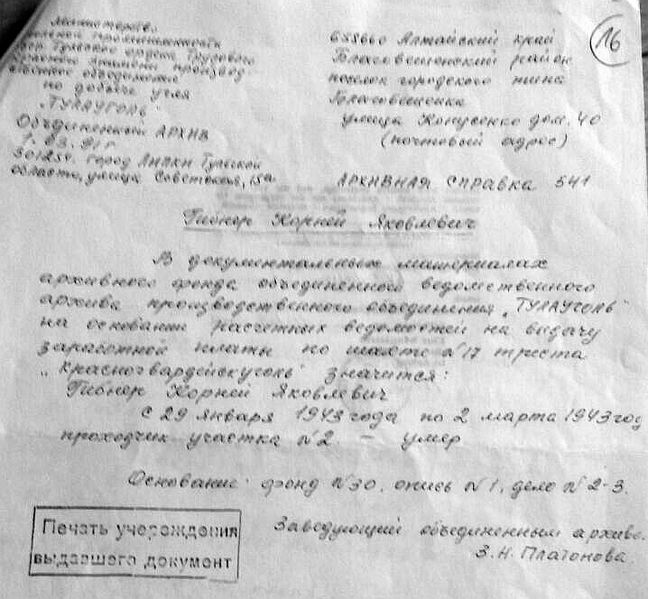 Министерство
угольной промышленности
СССР Тульское ордена Трудового
Красного Знамени производ
ственное объединение
по добыче угля
"ТУЛАУГОЛЬ"
Объединенный АРХИВ
1. 03. 91 г.
301254. город ЛИПКИ Тульской
области, улица Советская, 15а
16
658660 Алтайский край
Благовещенский район
поселок городского типа
Благовещенка
улица Кочубенко дом. 40
(почтовый адрес)
АРХИВНАЯ СПРАВКА 541
Гибнер Корней Яковлевич
В документальных материалах
архивного фонда объединенного ведомственного
архива производственного объединения „ТУЛАУГОЛЬ"
на основании расчетных ведомостей на выдачу
заработной платы по шахте №17 треста
„Красногвардейскуголь" значится:
Гибнер Корней Яковлевич
с 29 января 1943 года по 2 марта 1943 год
проходчик участка №2 – умер
Основание: фонд №30, опись №1, дело №2-3.
Заведующий объединенным архиво.
З.Н. Платонова.
Печать учереждения
выдавшего документ